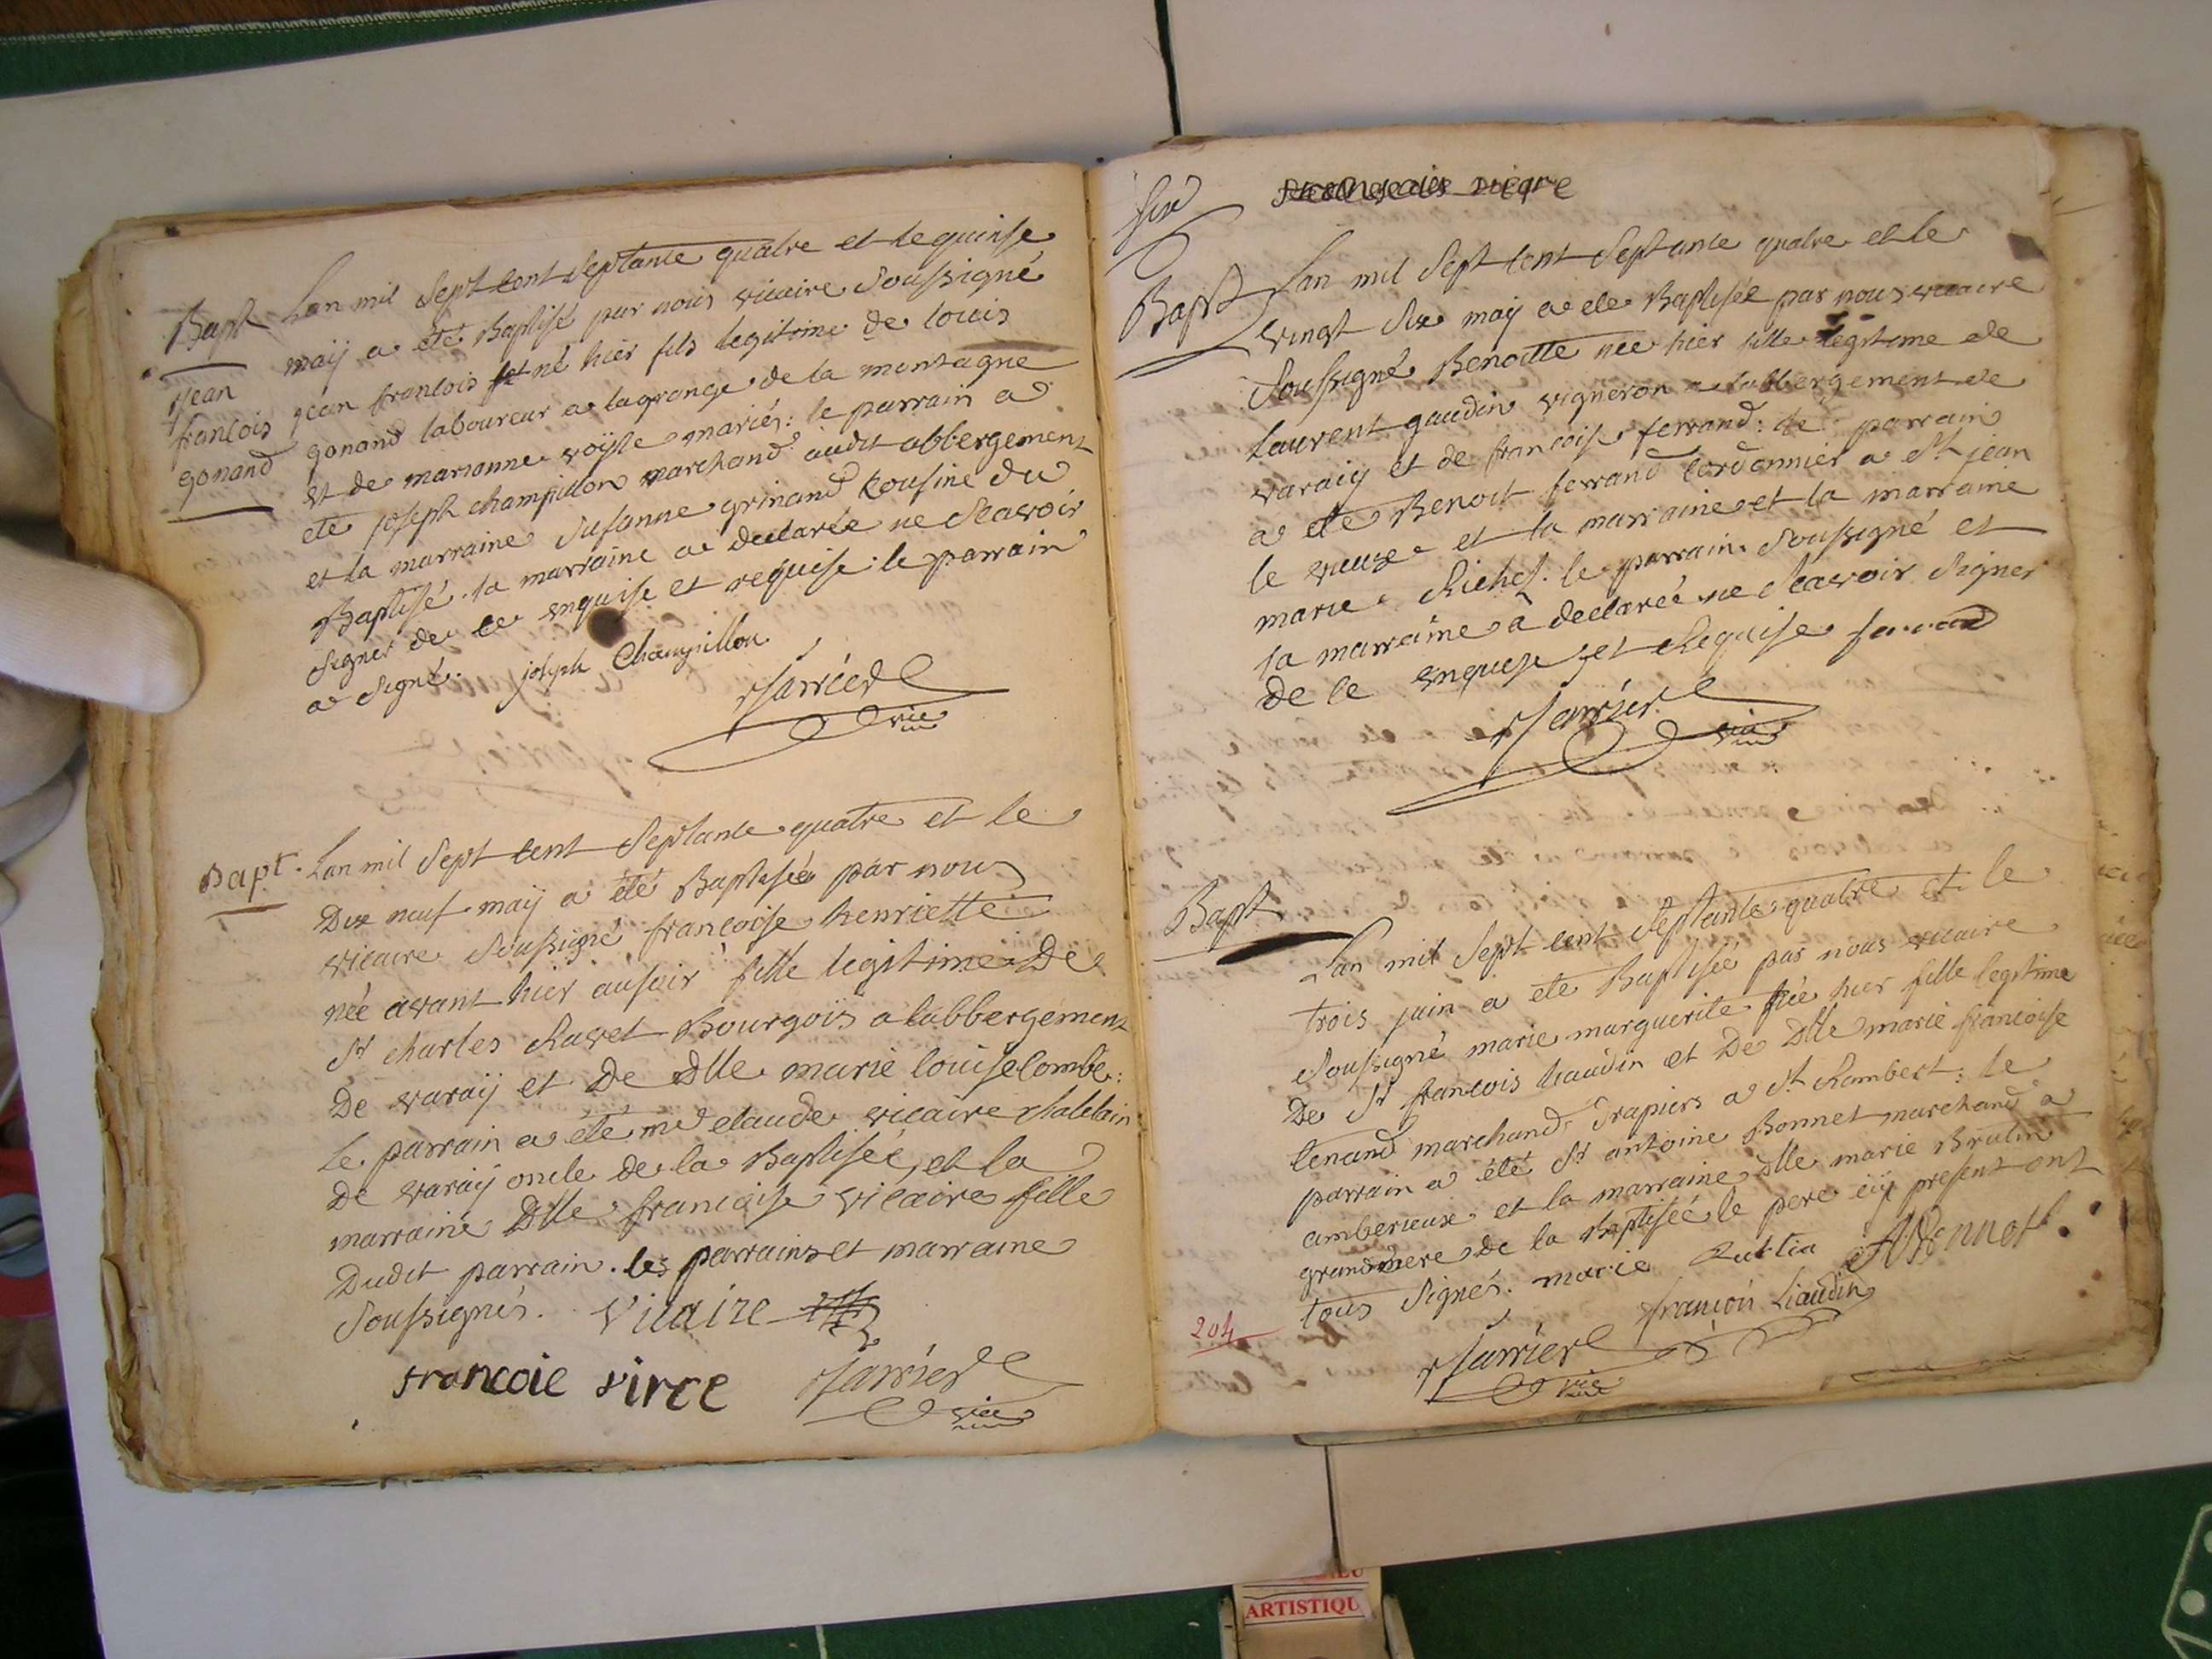 Bapt Lan mil Sept cent Septante quatre et le quinse
maÿ a été Baptisé par nous vicaire Soussigné
jean françois né hier fils legitime de louis
gonand laboureur a la grange de la montagne
et de marianne voÿtte mariés: le parrain a
eté joseph champillon marchand audit abbergement
et la marraine Susanne grinand Cousine du
Baptisé. la marraine a declarée ne Scavoir
Signer de ce enquise et requise: le parrain
a Signé. joseph Champillon
vic
jean
francois
gonand
Bapt. Lan mil Sept cent Septante quatre et le
Dix neuf maÿ a été Baptisée par nous
vicaire Soussigné françoise henriette
née avant hier ausoir fille legitime De
Sr charles Ravet Bourgois a labbergement
De varaÿ et De Dlle marie louise Combe:
le parrain a été me claude vicaire chatelain
De varaÿ oncle de la Baptisée, et la
marraine Dlle francoise vicaire fille
Dudit parrain. les parrains et marraine
Soussignés. Vicaire
francoie virce
vic
Bapt Lan mil Sept cent Septante quatre et le
vingt Six maÿ a ete Baptisée par nous vicaire
Soussigné Benoitte née hier fille legitime de
Laurent gaudin vigneron a labbergement de
varaiy et de francoise ferrand: le parrain
a eté Benoit ferrand Cordonnier a St jean
le vieux et la marraine et la marraine
marie Richet. le parrain Soussigné et
la marraine a declarée ne Scavoir Signer
de ce enquise et Requise ferrand
vic
Bapt
Lan mil Sept cent Septante quatre et le
trois juin a ete Baptisée par nous vicaire
Soussigné marie marguerite née hier fille legitime
De Sr francois liaudin et De Dlle marie francoise
tenand marchand Drapiers a St Rambert: le
parrain a été Sr antoine Bonnet marchand a
amberieux et la marraine Dlle marie
grandmere de la Baptisée le pere icÿ present ont
tous Signés. marie ABonnet
françois Liaudin
204
vic
ARTISTIQU